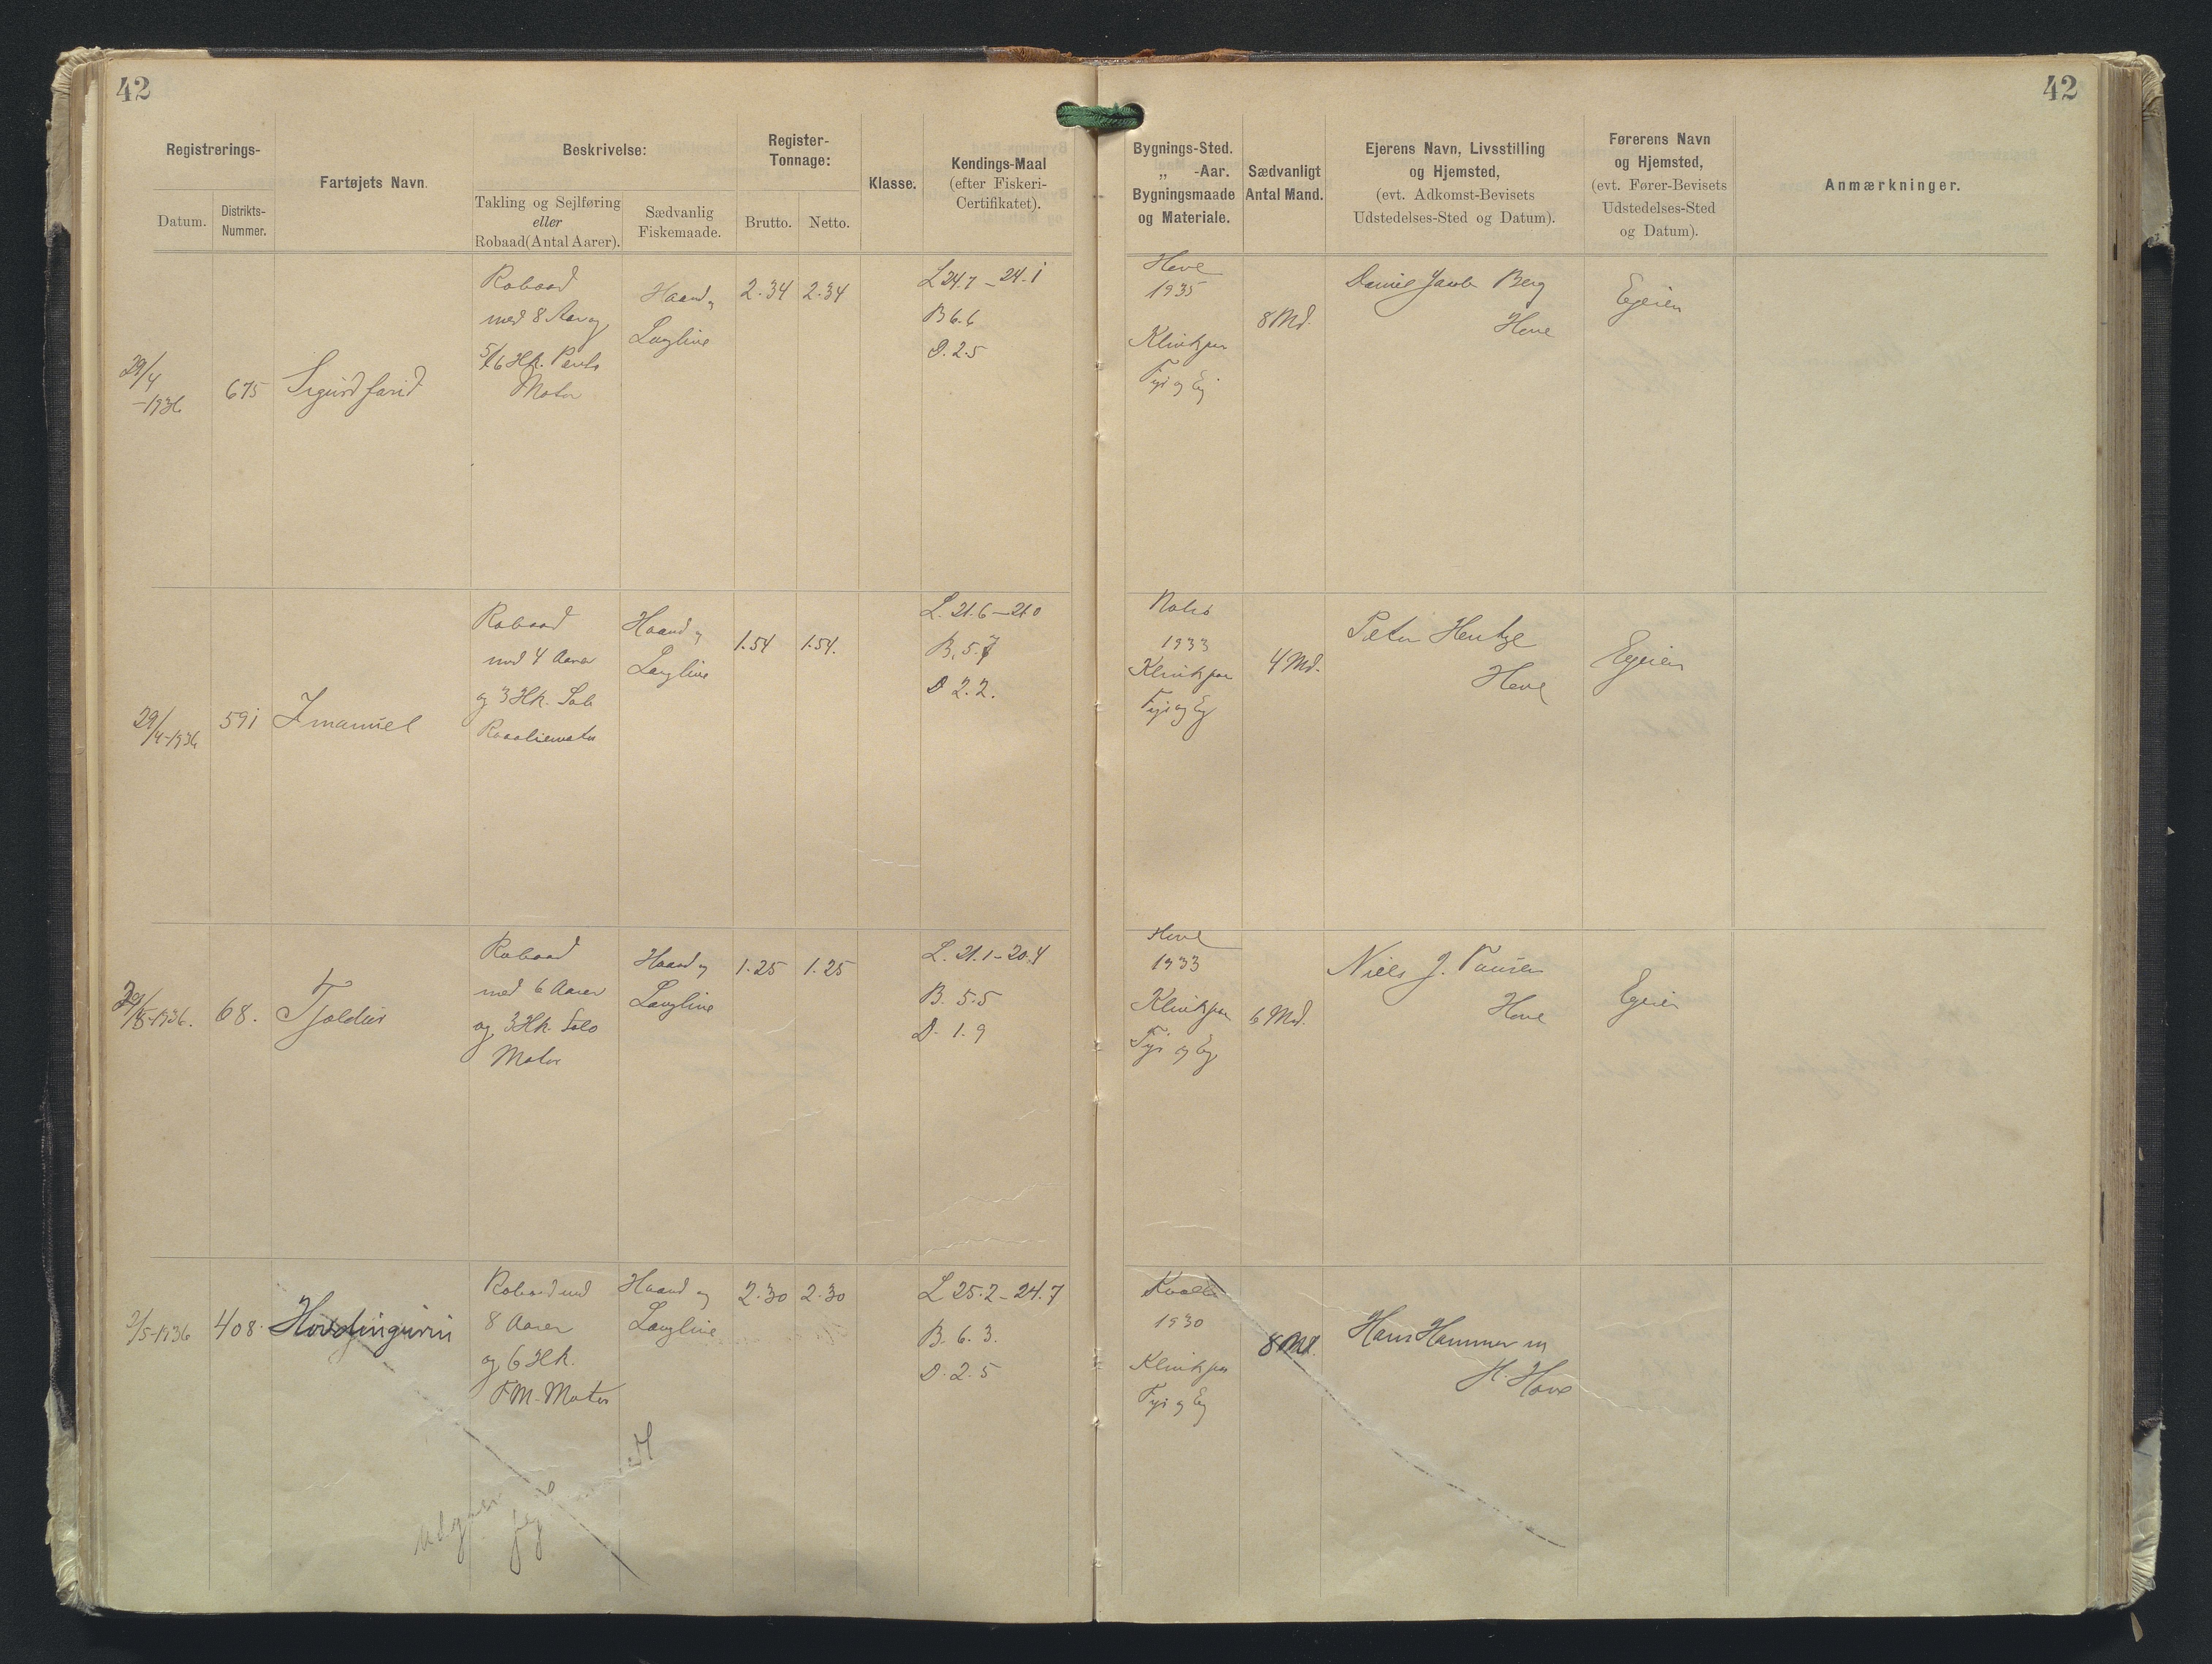 42
42
Registrerings-
Datum.
Distrikts-
Nummer.
Fartøjets Navn.
Beskrivelse:
Takling og Sejlføring
eller
Robaad(Antal Aarer).
Sædvanlig
Fiskemaade.
Register-
Tonnage:
Brutto.
Netto.
Klasse.
Kendings-Maal
(efter Fiskeri-
Certifikatet).
Bygnings-Sted.
„ -Aar.
Bygningsmaade
og Materiale.
Sædvanligt
Antal Mand.
Ejerens Navn, Livsstilling
og Hjemsted,
(evt. Adkomst-Bevisets
Udstedelses-Sted og Datum).
Førerens Navn
og Hjemsted,
(evt. Fører-Bevisets
Udstedelses-Sted
og Datum).
Anmærkninger.
29/4
-1936
675
Robaad
med 8 Aar og
5/6 Hk.
Motor
Haand og
Langline
2.34
2.34
L 24.7 - 24.1
B 6.6
D. 2.5
Hove
1935
Klinkpar
Fyr og Eg
8 Md.
Daniel Jacob Berg
Hove
Ejeren
29/4-1936
591
Imanuel
Robaad
med 4 Aarer
og 3 Hk.
Haand og
Langline
1.54
1.54.
L. 21.6 - 21.0
B. 5.7
D 2.2.
1933
Klinkpar
Fyr og Eg
4 Md.
Peter Hentze
Hove
Ejeren
68.
Tjaldur
Robaad
med 6 Aarer
og 3 Hk. Solo
Motor
Haand og
Langline
1.25
1.25
L. 21.1 - 20.4
B. 5.5
D. 1.9
Hove
1933
Klinkpar
Fyr og Eg
6 Md.
Niels J.
Hove
Ejeren
2/5-1936
408.
Hövdingurin
Robaad med
8 Aarer
og 6 Hk.
F.M. Motor
Haand og
Langline
2.30
2.30
L 25.2 - 24.7
B. 6.3.
D. 2.5
1930
Klinkpar
Fyr og Eg
8 Md.
Hans Hammer
Hove